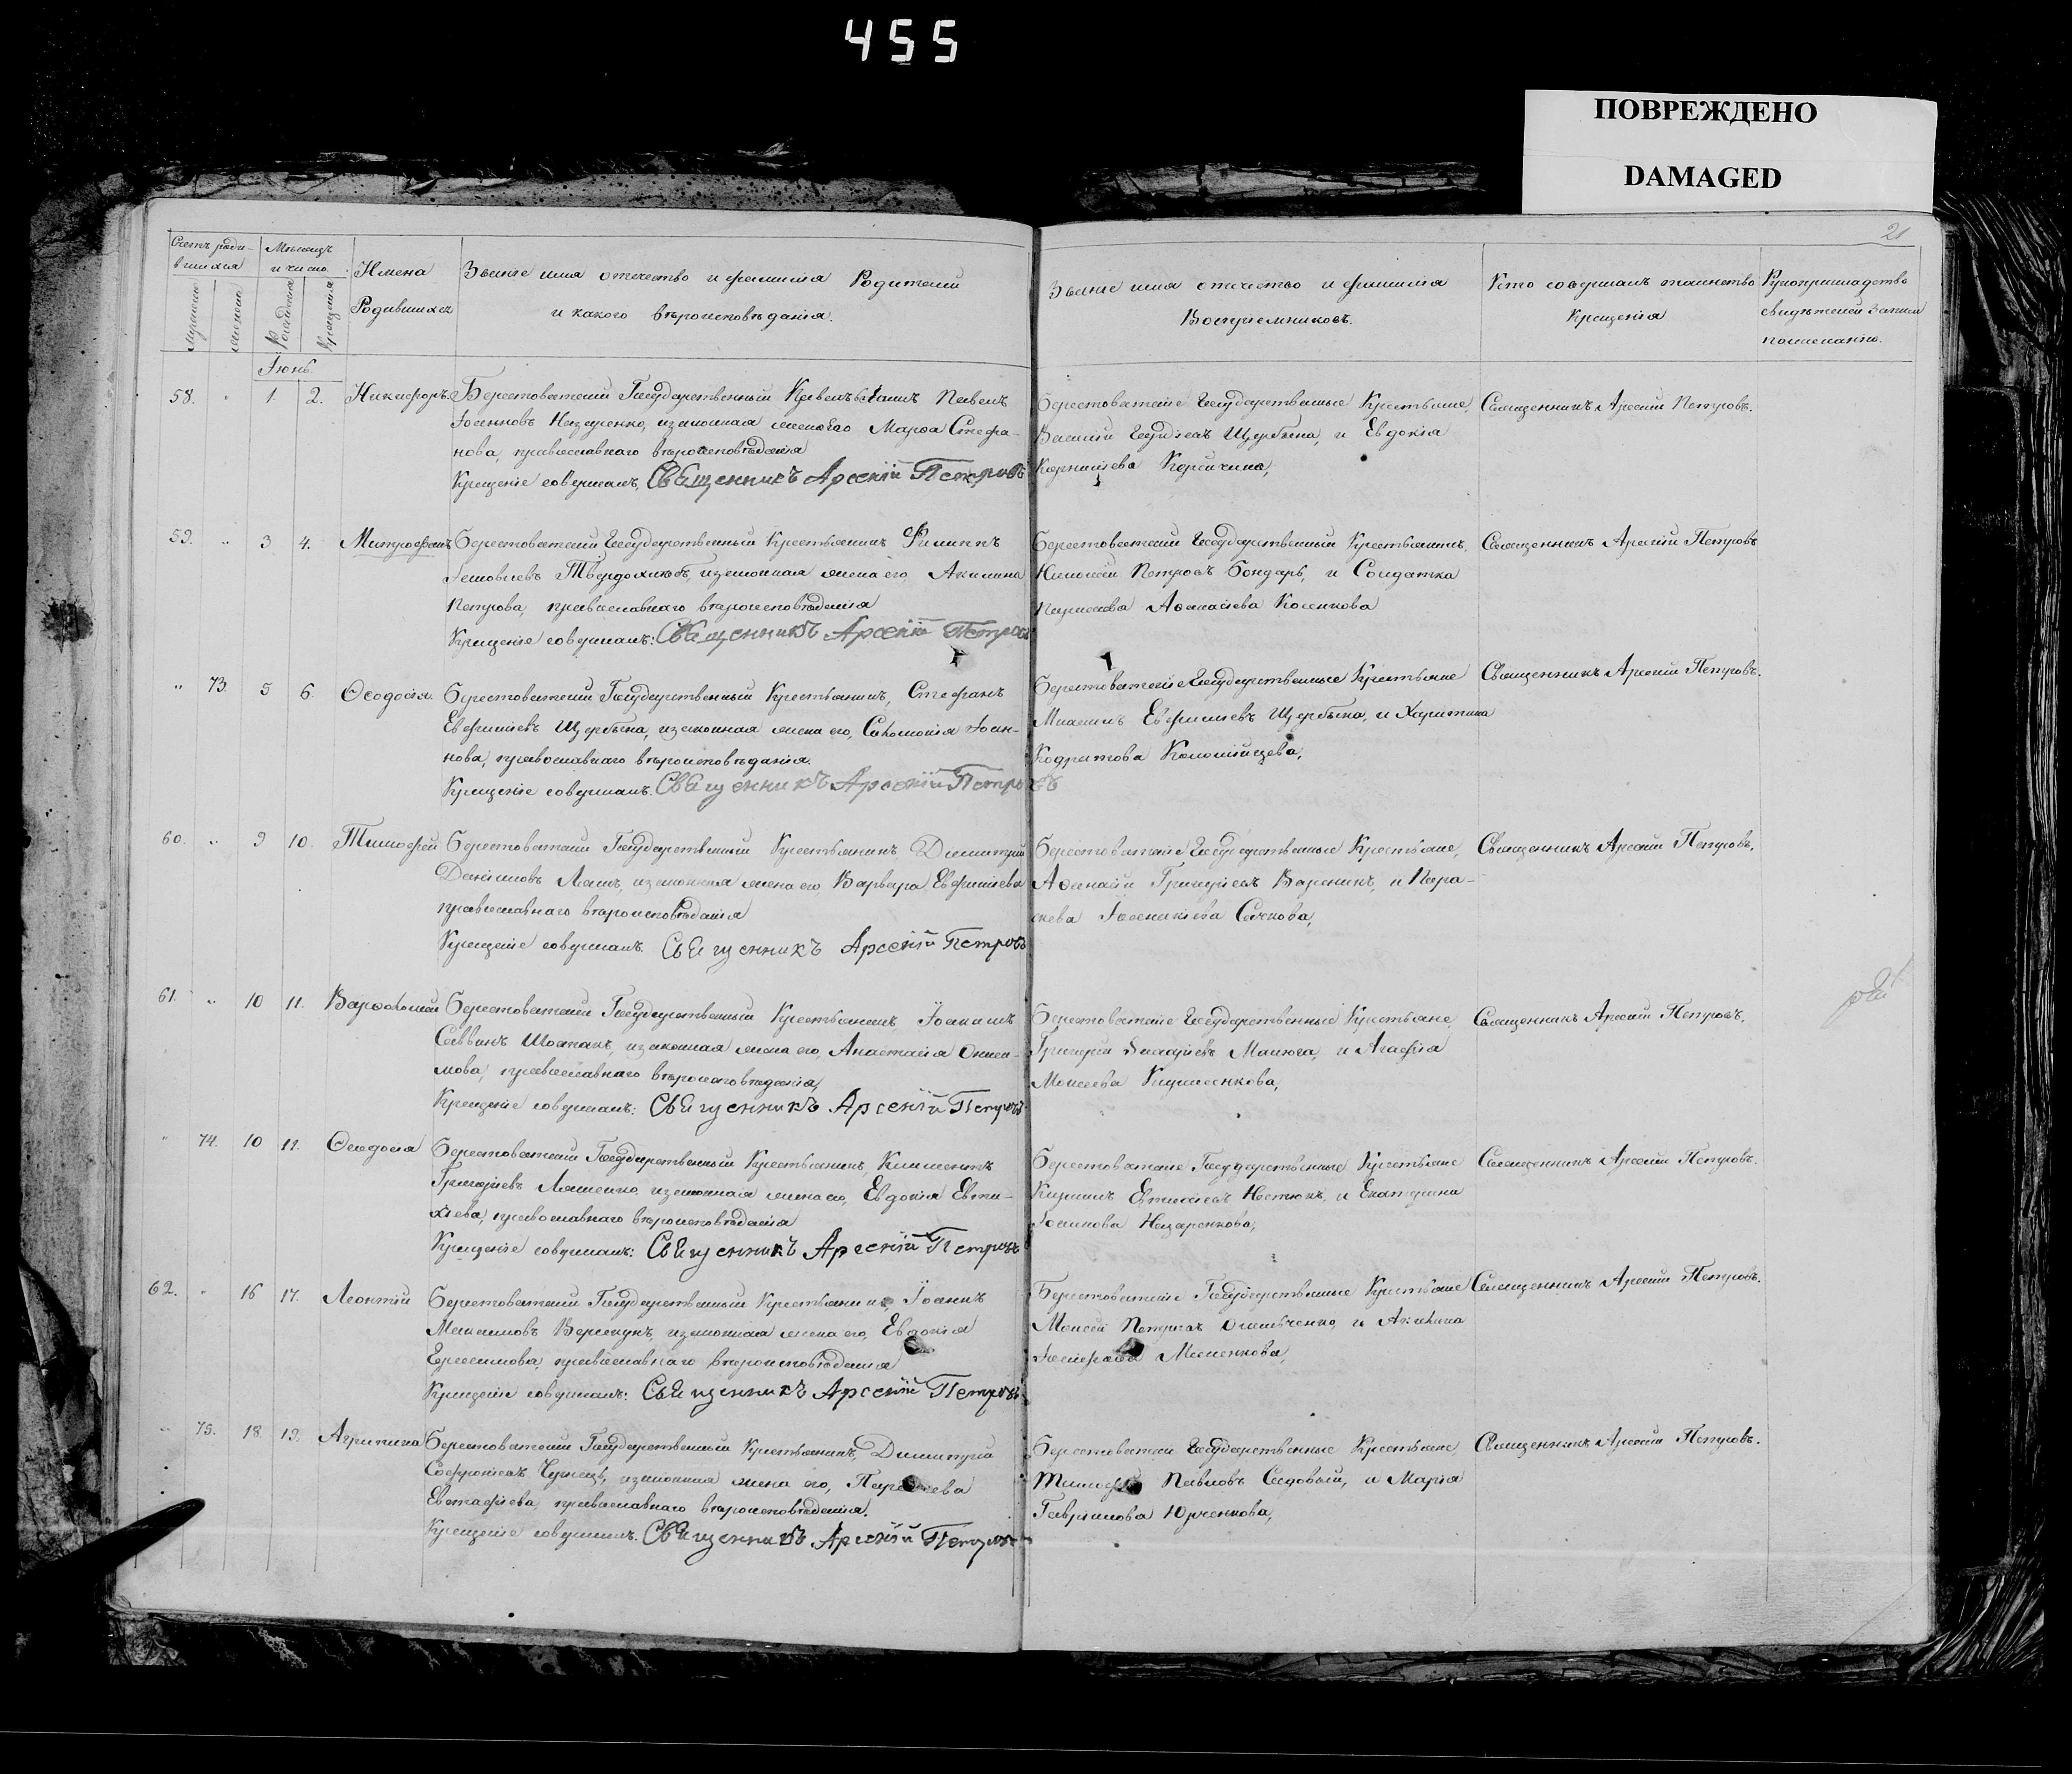 455
ПОВРЕЖДЕНО
DAMAGED
21
Счетъ роди-
вшихся
Мѣсяцъ
и число.
Имена
Родившихся
Званіе имя отчество и фамилія Родителей
и какого вѣроисповѣданія.
Званіе имя отчество и фамилія
Воспріемниковъ.
Кто совершалъ таинство
Крещенія
Рукоприкладство
свидѣтелей записи
по желанію.
Рожденія
Крещенія
Іюнь.
58. " 1. 2. Никифоръ. Берестоватский Государственный Павелъ
Іоанновъ Назаренко, и законная жена его Марѳа Стефа-
нова, православнаго вѣроисповѣданія
Крещеніе совершалъ, Священникъ Арсеній Петровъ
Берестоватские Государственные Крестьяне,
Василій Щербина, и Евдокія
Корнилиева
Священникъ Арсеній Петровъ.
59. " 3 4. Митрофанъ Берестоватский Государственный Крестьянинъ Филиппъ
Твердохлѣбъ, и законная жена его, Акилина
Петрова, православнаго вѣроисповѣданія
Крещеніе совершалъ: Священникъ Арсеній Петровъ
Берестоватский Государственный Крестьянинъ,
Николай Петровъ Бондарь, и Солдатка
Аѳанасіева
Священникъ Арсеній Петровъ
" 73. 5 6. Ѳеодосія. Берестоватский Государственный Крестьянинъ, Стефанъ
Евфиміевъ Щербина, и законная жена его, Соломонія Іоан-
нова, православнаго вѣроисповѣданія.
Крещеніе совершалъ. Священникъ Арсеній Петровъ
Берестоватские Государственные Крестьяне
Михаилъ Евфиміевъ Щербина, и Харитина
Кодратова Коломійцева,
Священникъ Арсеній Петровъ.
60. " 9 10. Тимофей Берестоватский Государственный Крестьянинъ Димитрий
Даніиловъ и законная жена его, Варвара Евфиміева
православнаго вѣроисповѣданія
Крещеніе совершалъ. Священникъ Арсеній Петровъ
Берестоватские Государственные Крестьяне,
Аѳанасій Григоріевъ Вареникъ, и Пара-
скева
Священникъ Арсеній Петровъ.
61. " 10 11. Варѳоломей Берестоватский Государственный Крестьянинъ, Іоакимъ
Саввинъ и законная жена его, Анастасія
мова, православнаго вѣроисповѣданія,
Крещеніе совершалъ: Священникъ Арсеній Петровъ
Берестоватские Государственные Крестьяне
Григорій и Агафія
Моисеева
Священникъ Арсеній Петровъ.
" 74. 10 11. Ѳеодосія Берестоватский Государственный Крестьянинъ, Климентъ
Григоріевъ Ляшенко, и законная жена его, Евдокія Евти-
хіева, православнаго вѣроисповѣданія
Крещеніе совершалъ: Священникъ Арсеній Петровъ
Берестоватские Государственные Крестьяне
Кириллъ и Екатерина
Назаренкова,
Священникъ Арсеній Петровъ.
62. " 16 17. Леонтій Берестоватский Государственный Крестьянинъ, Іоаннъ
Максимовъ и законная жена его, Евдокія
Герасимова, православнаго вѣроисповѣданія
Крещеніе совершалъ: Священникъ Арсеній Петровъ
Берестоватские Государственные Крестьяне
Моисей и Акилина
Священникъ Арсеній Петровъ.
" 75. 18. 19. Агрипина Берестоватский Государственный Крестьянинъ, Димитрий
Софроніевъ Чернецъ, и законная жена его, Параскева
Евстафіева, православнаго вѣроисповѣданія.
Крещеніе совершалъ. Священникъ Арсеній Петровъ
Берестоватские Государственные Крестьяне
Тимофей Павловъ Садовый, и Марія
Гавріилова Юрченкова,
Священникъ Арсеній Петровъ.